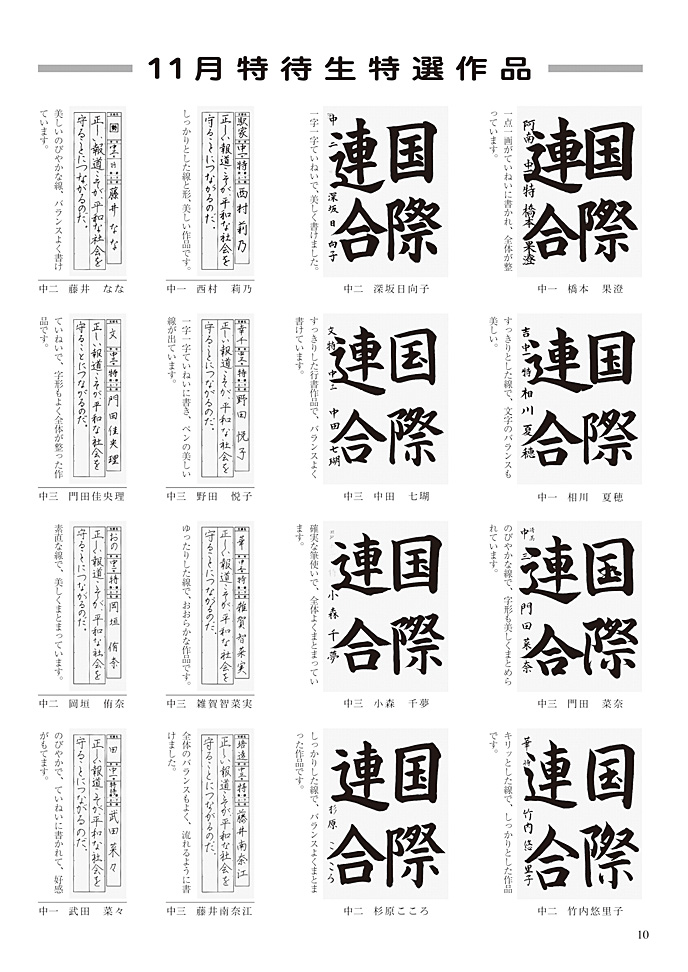 11月特待生特選作品
国際
連合
阿南 中一 特 橋本果澄
一点一画がていねいに書かれ、全体が整
っています。
中一 橋本 果澄
国際
連合
中二 深坂日向子
一字一字ていねいで、美しく書けました。
中二 深坂日向子
駅家 中一 特 西村莉乃
正しい報道こそが、平和な社会を
守ることにつながるのだ。
しっかりとした線と形、美しい作品です。
中一 西村 莉乃
中二 特 藤井なな
正しい報道こそが、平和な社会を
守ることにつながるのだ。
美しいのびやかな線、バランスよく書け
ています。
中二 藤井 なな
国際
連合
吉 中一 特 相川夏穂
すっきりとした線で、文字のバランスも
美しい。
中一 相川 夏穂
国際
連合
文 特 中三 中田七瑚
すっきりした行書作品で、バランスよく
書けています。
中三 中田 七瑚
幸千 中三 特 野田悦子
正しい報道こそが、平和な社会を
守ることにつながるのだ。
一字一字ていねいに書き、ペンの美しい
線が出ています。
中三 野田 悦子
文 中三 特 門田佳央理
正しい報道こそが、平和な社会を
守ることにつながるのだ。
ていねいで、字形もよく全体が整った作
品です。
中三 門田佳央理
国際
連合
中三 門田菜奈
のびやかな線で、字形も美しくまとめら
れています。
中三 門田 菜奈
国際
連合
小森千夢
確実な筆使いで、全体よくまとまってい
ます。
中三 小森 千夢
華 中三 特 雑賀智菜実
正しい報道こそが、平和な社会を
守ることにつながるのだ。
ゆったりした線で、おおらかな作品です。
中三 雑賀智菜実
おの 中二 特 岡垣侑奈
正しい報道こそが、平和な社会を
守ることにつながるのだ。
素直な線で、美しくまとまっています。
中二 岡垣 侑奈
国際
連合
華 特 竹内悠里子
キリッとした線で、しっかりとした作品
です。
中二 竹内悠里子
国際
連合
杉原こころ
しっかりした線で、バランスよくまとま
った作品です。
中二 杉原こころ
中三 特 藤井南奈江
正しい報道こそが、平和な社会を
守ることにつながるのだ。
全体のバランスもよく、流れるように書
けました。
中三 藤井南奈江
田 中一 特待 武田菜々
正しい報道こそが、平和な社会を
守ることにつながるのだ。
のびやかで、ていねいに書かれて、好感
がもてます。
中一 武田 菜々
10